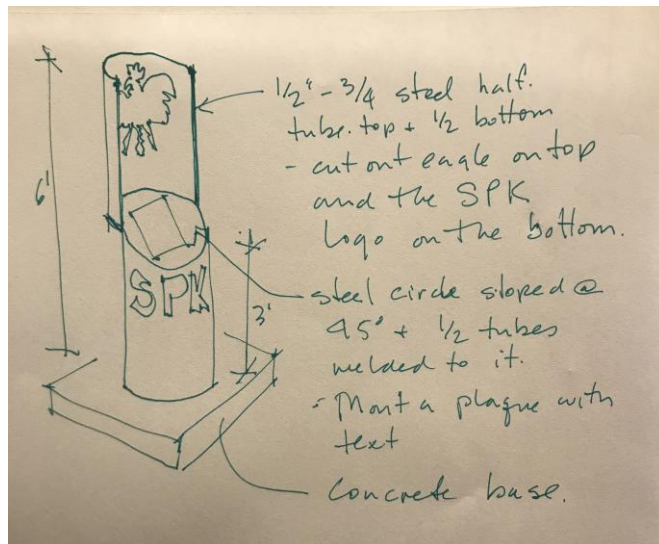 1/2" - 3/4 steel half.
tube. top + 1/2 bottom
- cut out eagle on top
and the SPK
Logo on the bottom.
6'
SPK
3'
steel circle sloped @
45° + 1/2 tubes
welded to it.
- Mont a plaque with
text
Concrete base.